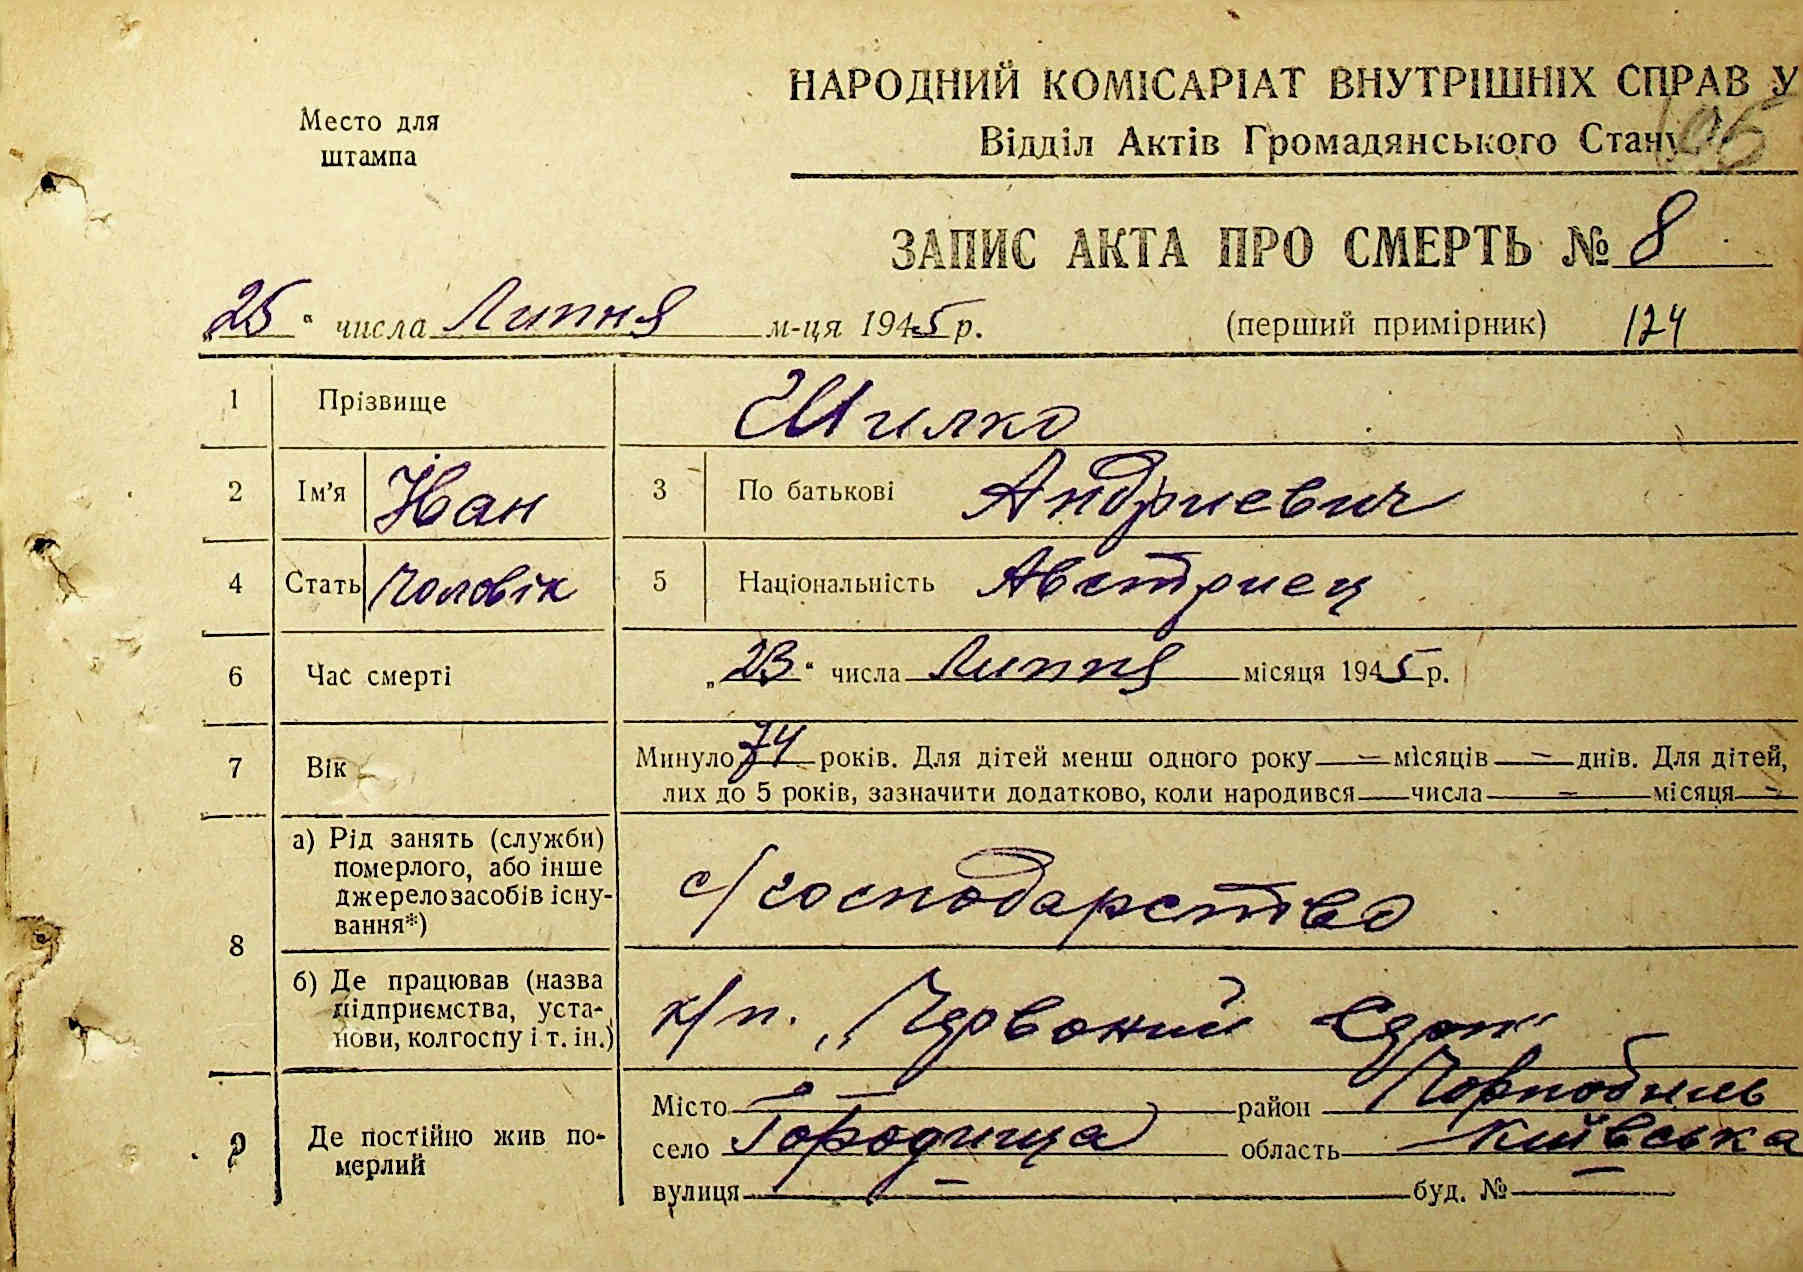 НАРОДНИЙ КОМІСАРІАТ ВНУТРІШНІХ СПРАВ У
Место для
штампа
Відділ Актів Громадянського Стану
ЗАПИС АКТА ПРО СМЕРТЬ № 8
„25“ числа Липня м-ця 1945 р. (перший примірник) 124
1 Прізвище Шилко
2 Ім'я Іван 3 По батькові Андриевич
4 Стать Чоловік 5 Національність Австриец
6 Час смерті „23“ числа Липня місяця 1945 р.
7 Вік Минуло 74 років. Для дітей менш одного року — місяців — днів. Для дітей,
лих до 5 років, зазначити додатково, коли народився — числа — місяця —
8 а) Рід занять (служби)
померлого, або інше
джерело засобів існу-
вання*)
с/господарство
б) Де працював (назва
підприємства, уста-
нови, колгоспу і т. ін.)
к/п. „Червоний
9 Де постійно жив по-
мерлий
Місто — район Чорнобиль
село Городища область Київська
вулиця — буд. № —